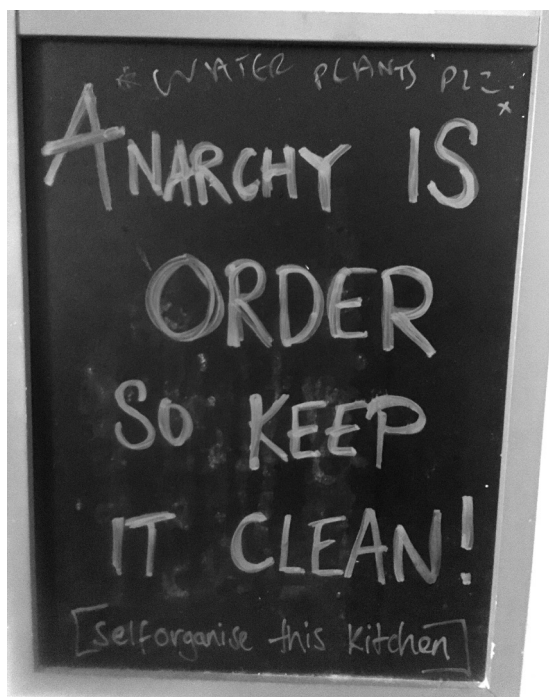 * WATER PLANTS PLZ. x
ANARCHY IS
ORDER
SO KEEP
IT CLEAN!
[selforganise this kitchen]